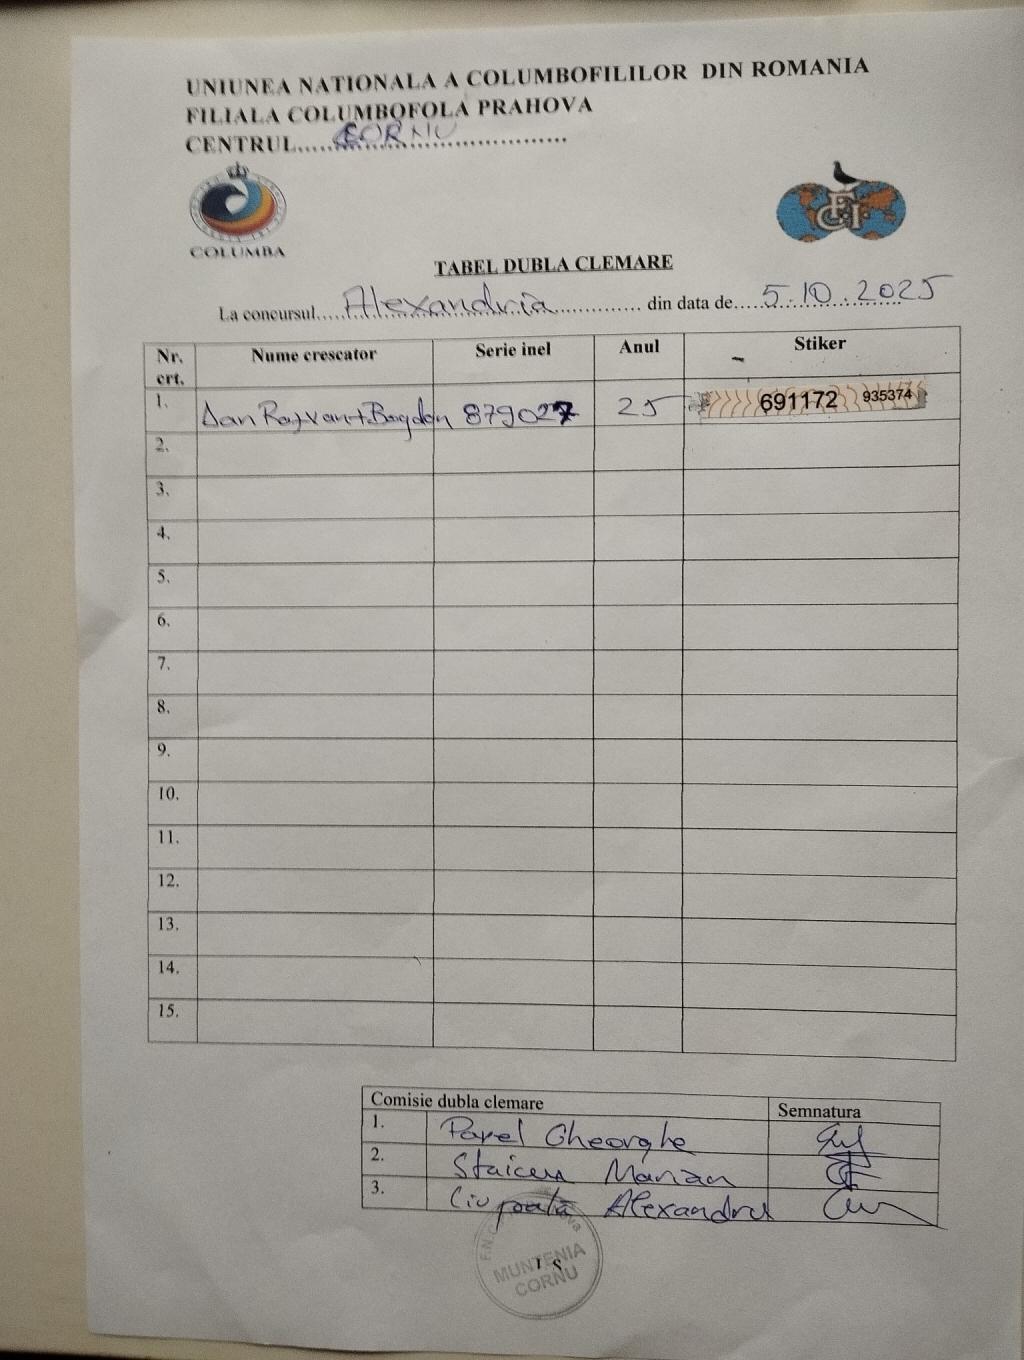 UNIUNEA NATIONALA A COLUMBOFILILOR DIN ROMANIA
FILIALA COLUMBOFOLA PRAHOVA
CENTRUL.....CORNU..............................
COLUMBA
FCI
TABEL DUBLA CLEMARE
La concursul.....Alexandria............... din data de.....5.10.2025
Nr. crt. Nume crescator Serie inel Anul Stiker
1. Dan Razvan+Bogdan 879027 25 691172 935374
2.
3.
4.
5.
6.
7.
8.
9.
10.
11.
12.
13.
14.
15.
Comisie dubla clemare Semnatura
1. Pavel Gheorghe
2. Staicu Marian
3. Ciupală Alexandru
MUNTENIA
CORNU